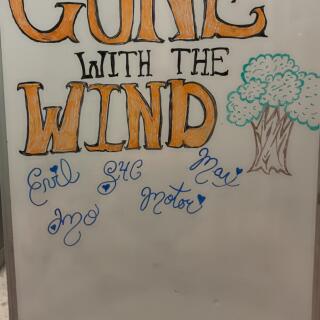 GONE
WITH THE
WIND
Evil S4C Max
Mo Motor